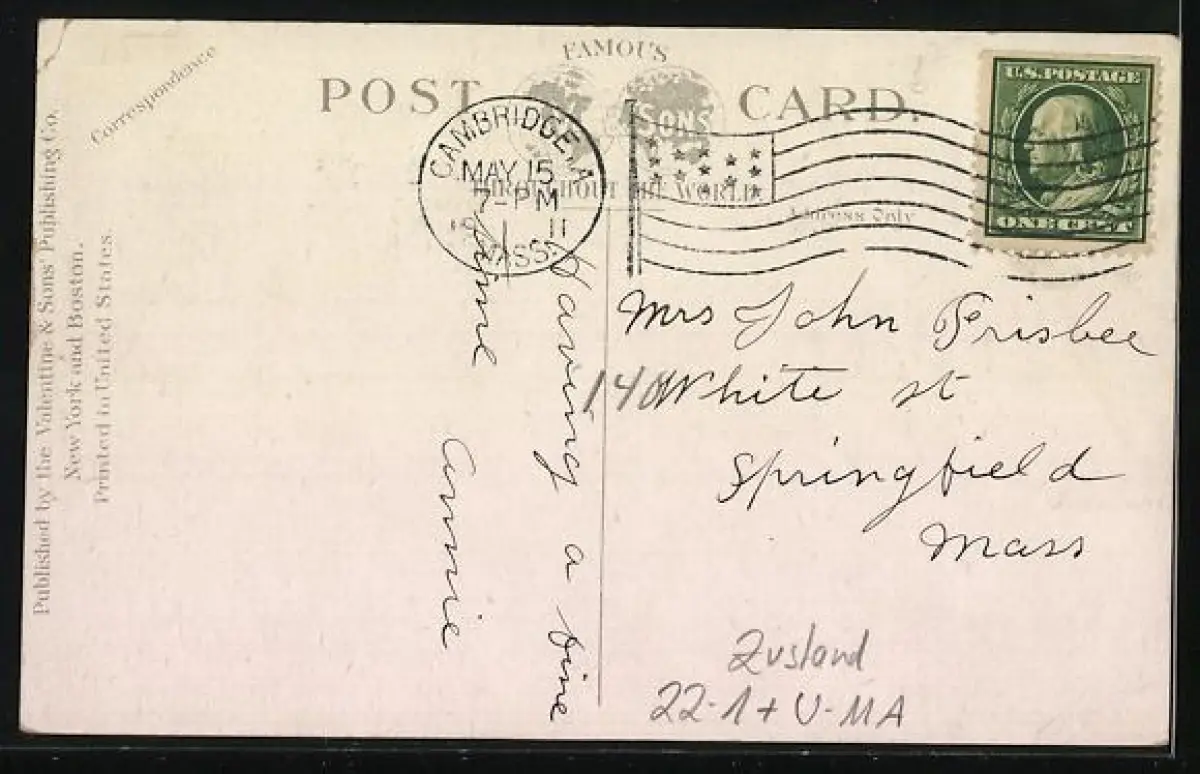 Correspondence
FAMOUS
POST CARD.
SONS
THROUGHOUT THE WORLD.
Address Only
U.S. POSTAGE
ONE CENT
CAMBRIDGE
MAY 15
7-PM
11
MASS.
Published by the Valentine & Sons' Publishing Co.
New York and Boston.
Printed in United States.
Having a fine
time
Annie
Mrs John Frisbee
140 White st
Springfield
Mass
Zustand
22-1+ U-MA